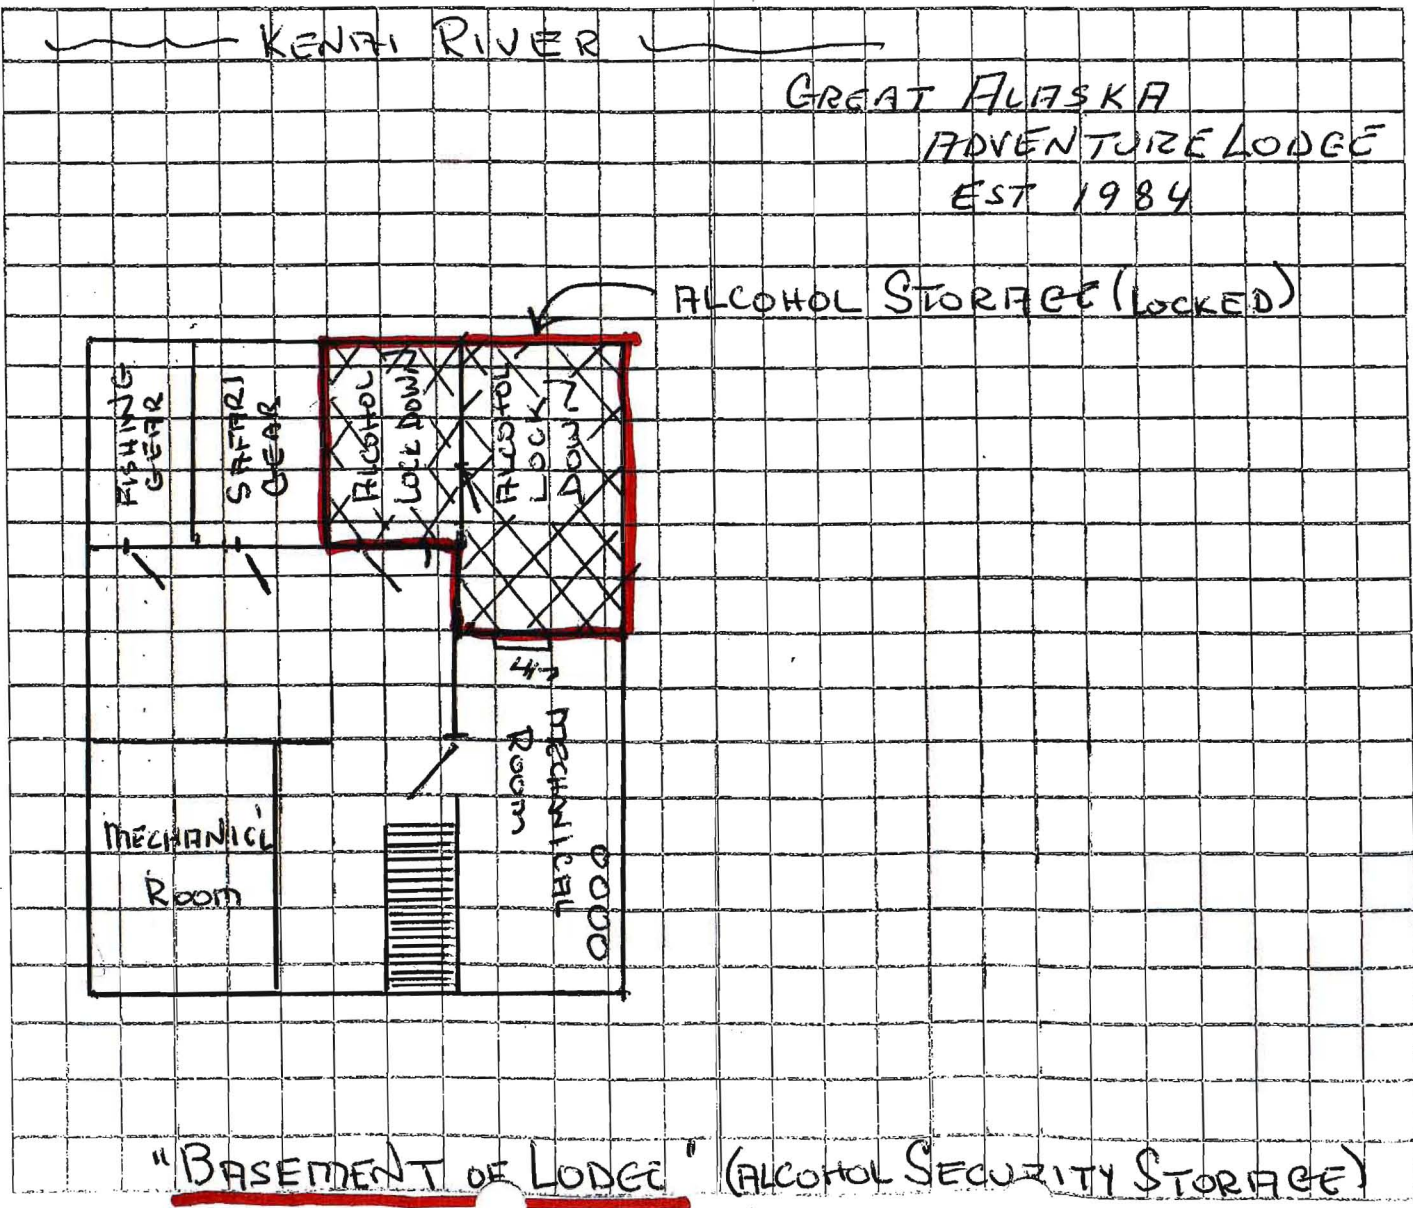 KENAI RIVER
GREAT ALASKA
ADVENTURE LODGE
EST 1984
ALCOHOL STORAGE (LOCKED)
FISHING
GEAR
SAFARI
GEAR
ALCOHOL
LOCK DOWN
ALCOHOL
LOCK
DOWN
MECHANICAL
ROOM
MECHANIC'L
ROOM
"BASEMENT OF LODGE" (ALCOHOL SECURITY STORAGE)